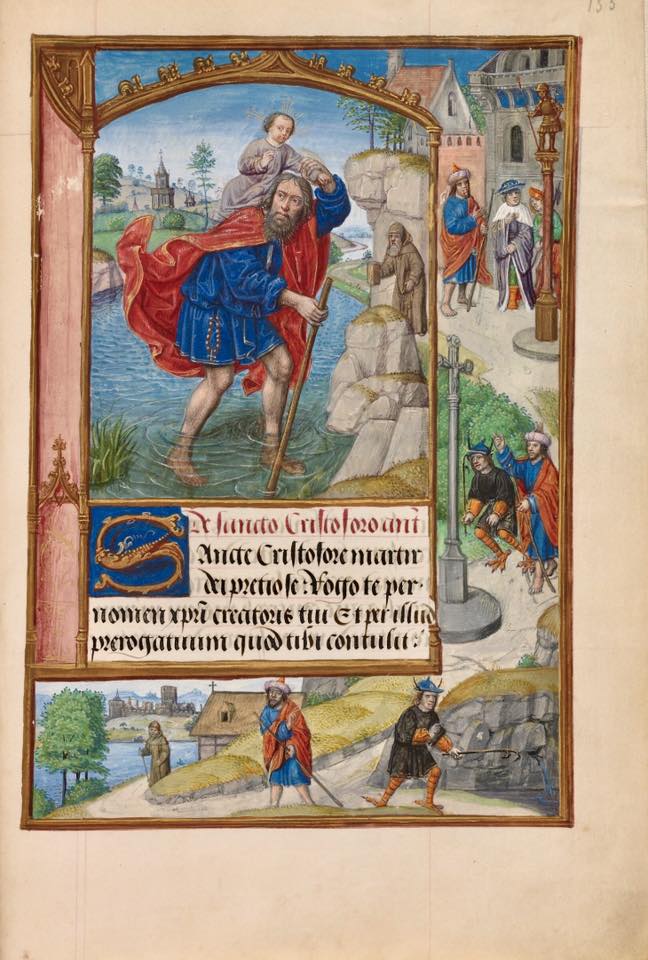 De sancto Cristoforo ant
Sancte Cristofore martir
dei pretiose Rogo te per
nomen xpri creatoris tui Et per illud
prerogatiuum quod tibi contulit :